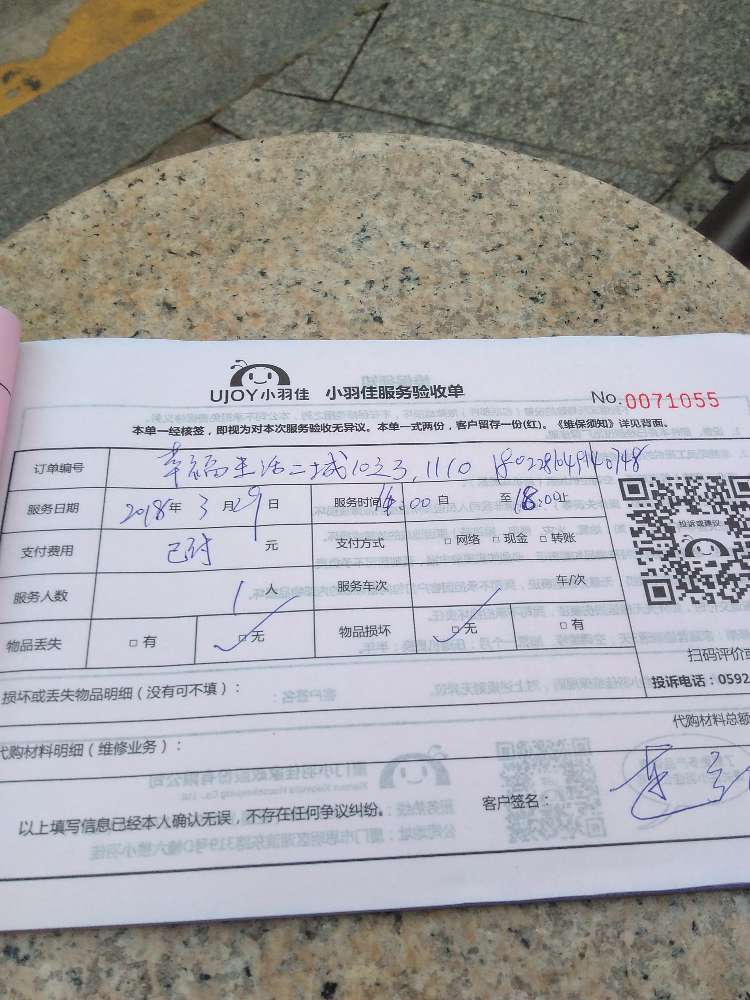 UJOY小羽佳 小羽佳服务验收单 No.0071055
本单一经核签，即视为对本次服务验收无异议。本单一式两份，客户留存一份(红)。《维保须知》详见背面。
订单编号 幸福生活二城
服务日期 2018年 3月29日 服务时间 14:00自 至18:00止
投诉或建议
支付费用 已付 元 支付方式 □网络 □现金 □转账
服务人数 1人 服务车次 车/次
物品丢失 □有 □无 物品损坏 □无 □有
扫码评价或
损坏或丢失物品明细（没有可不填）： 投诉电话：0592
代购材料明细（维修业务）： 代购材料总额
以上填写信息已经本人确认无误，不存在任何争议纠纷。 客户签名：